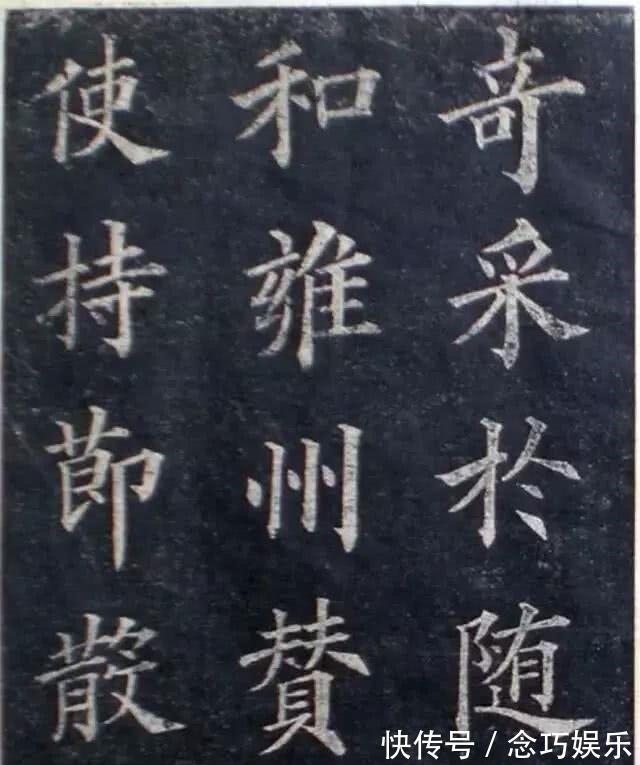 奇采於随
和雍州賛
使持節散
快传号/念巧娱乐